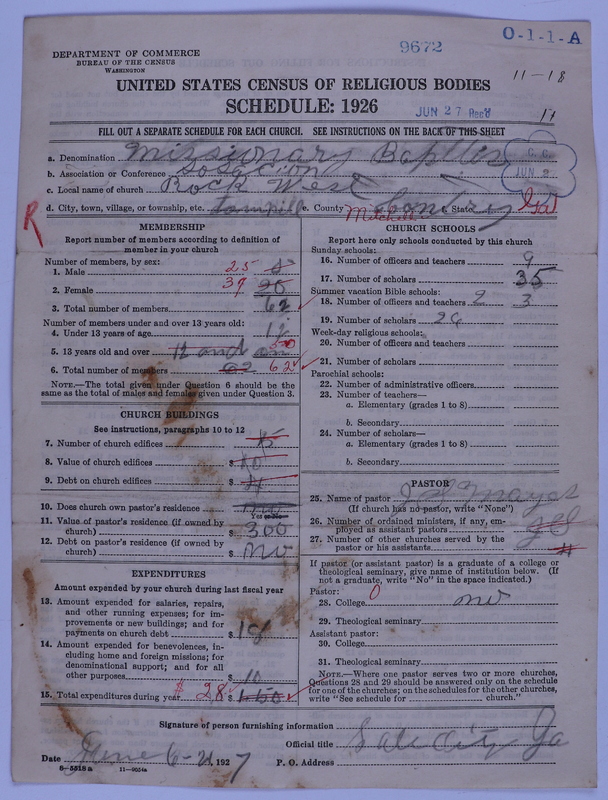 9672
O-1-1-A
DEPARTMENT OF COMMERCE
BUREAU OF THE CENSUS
WASHINGTON
11-18
UNITED STATES CENSUS OF RELIGIOUS BODIES
SCHEDULE: 1926
JUN 27 Rec'd
11
FILL OUT A SEPARATE SCHEDULE FOR EACH CHURCH. SEE INSTRUCTIONS ON THE BACK OF THIS SHEET
a. Denomination Missionary Baptist
b. Association or Conference
JUN 2
c. Local name of church Rock West
d. City, town, village, or township, etc. e. County Mitchell State Ga
MEMBERSHIP
Report number of members according to definition of member in your church
Number of members, by sex:
1. Male 25
2. Female 37
3. Total number of members 62
Number of members under and over 13 years old:
4. Under 13 years of age 12
5. 13 years old and over 12 and 50
6. Total number of members 62 62
NOTE.—The total given under Question 6 should be the same as the total of males and females given under Question 3.
CHURCH BUILDINGS
See instructions, paragraphs 10 to 12
7. Number of church edifices
8. Value of church edifices $
9. Debt on church edifices $
10. Does church own pastor's residence
Yes or No
11. Value of pastor's residence (if owned by church) $ 300
12. Debt on pastor's residence (if owned by church) $ no
EXPENDITURES
Amount expended by your church during last fiscal year
13. Amount expended for salaries, repairs, and other running expenses; for improvements or new buildings; and for payments on church debt $ 18
14. Amount expended for benevolences, including home and foreign missions; for denominational support; and for all other purposes $ 10
15. Total expenditures during year $ 28 $
CHURCH SCHOOLS
Report here only schools conducted by this church
Sunday schools:
16. Number of officers and teachers 9
17. Number of scholars 35
Summer vacation Bible schools:
18. Number of officers and teachers 2 3
19. Number of scholars
Week-day religious schools:
20. Number of officers and teachers
21. Number of scholars
Parochial schools:
22. Number of administrative officers
23. Number of teachers—
a. Elementary (grades 1 to 8)
b. Secondary
24. Number of scholars—
a. Elementary (grades 1 to 8)
b. Secondary
PASTOR
25. Name of pastor
(If church has no pastor, write "None")
26. Number of ordained ministers, if any, employed as assistant pastors
27. Number of other churches served by the pastor or his assistants
If pastor (or assistant pastor) is a graduate of a college or theological seminary, give name of institution below. (If not a graduate, write "No" in the space indicated.)
Pastor:
28. College 0 no
29. Theological seminary
Assistant pastor:
30. College
31. Theological seminary
NOTE.—Where one pastor serves two or more churches, Questions 28 and 29 should be answered only on the schedule for one of the churches; on the schedules for the other churches, write "See schedule for church."
Signature of person furnishing information
Official title Sale City Ga
Date June 6-21, 1927 P. O. Address